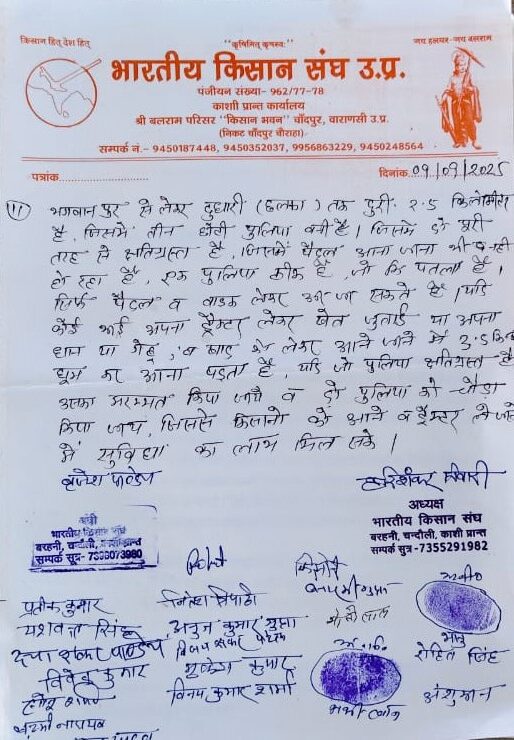 किसान हित् देश हित्
"कृषिमित् कृषस्वः"
जय हलधर-जय बलराम
भारतीय किसान संघ उ.प्र.
पंजीयन संख्या- 962/77-78
काशी प्रान्त कार्यालय
श्री बलराम परिसर "किसान भवन" चाँदपुर, वाराणसी उ.प्र.
(निकट चाँदपुर चौराहा)
सम्पर्क नं.- 9450187448, 9450352037, 9956863229, 9450248564
पत्रांक
दिनांक 09/09/2025
भगवानपुर से लेकर दुधारी (हलका) तक दुरी 2.5 किलोमीटर
है, जिसमें तीन छोटी पुलिया बनी है। जिसमें दो पुरी
तरह से क्षतिग्रस्त है, जिसमें पैदल आना जाना भी न ही
हो रहा है, एक पुलिया ठीक है, जो कि पतला है।
सिर्फ पैदल व बाइक लेकर आ जा सकते है। यदि
कोई भाई अपना ट्रैक्टर लेकर खेत जुताई या अपना
धान या गेहूं, व खाद को लेकर आने जाने में 2.5 किमी
घूम कर आना पड़ता है, यदि जो पुलिया क्षतिग्रस्त है
उसका मरम्मत किया जाये व दो पुलिया को चौड़ा
किया जाय, जिससे किसानो को आने व ट्रैक्टर ले जाने
में सुविधा का लाभ मिल सके।
बृजेश पाण्डेय
हरिशंकर तिवारी
मंत्री
भारतीय किसान संघ
बरहनी, चन्दौली, काशी प्रान्त
अध्यक्ष
भारतीय किसान संघ
बरहनी, चन्दौली, काशी प्रान्त
सम्पर्क सुत्र-7355291982
प्रतीक कुमार
यशवन्त सिंह
अनुज कुमार गुप्ता
दया शंकर पाण्डेय
विवेक कुमार
कुमार
विनय कुमार शर्मा
रोहित सिंह
अंशुमान